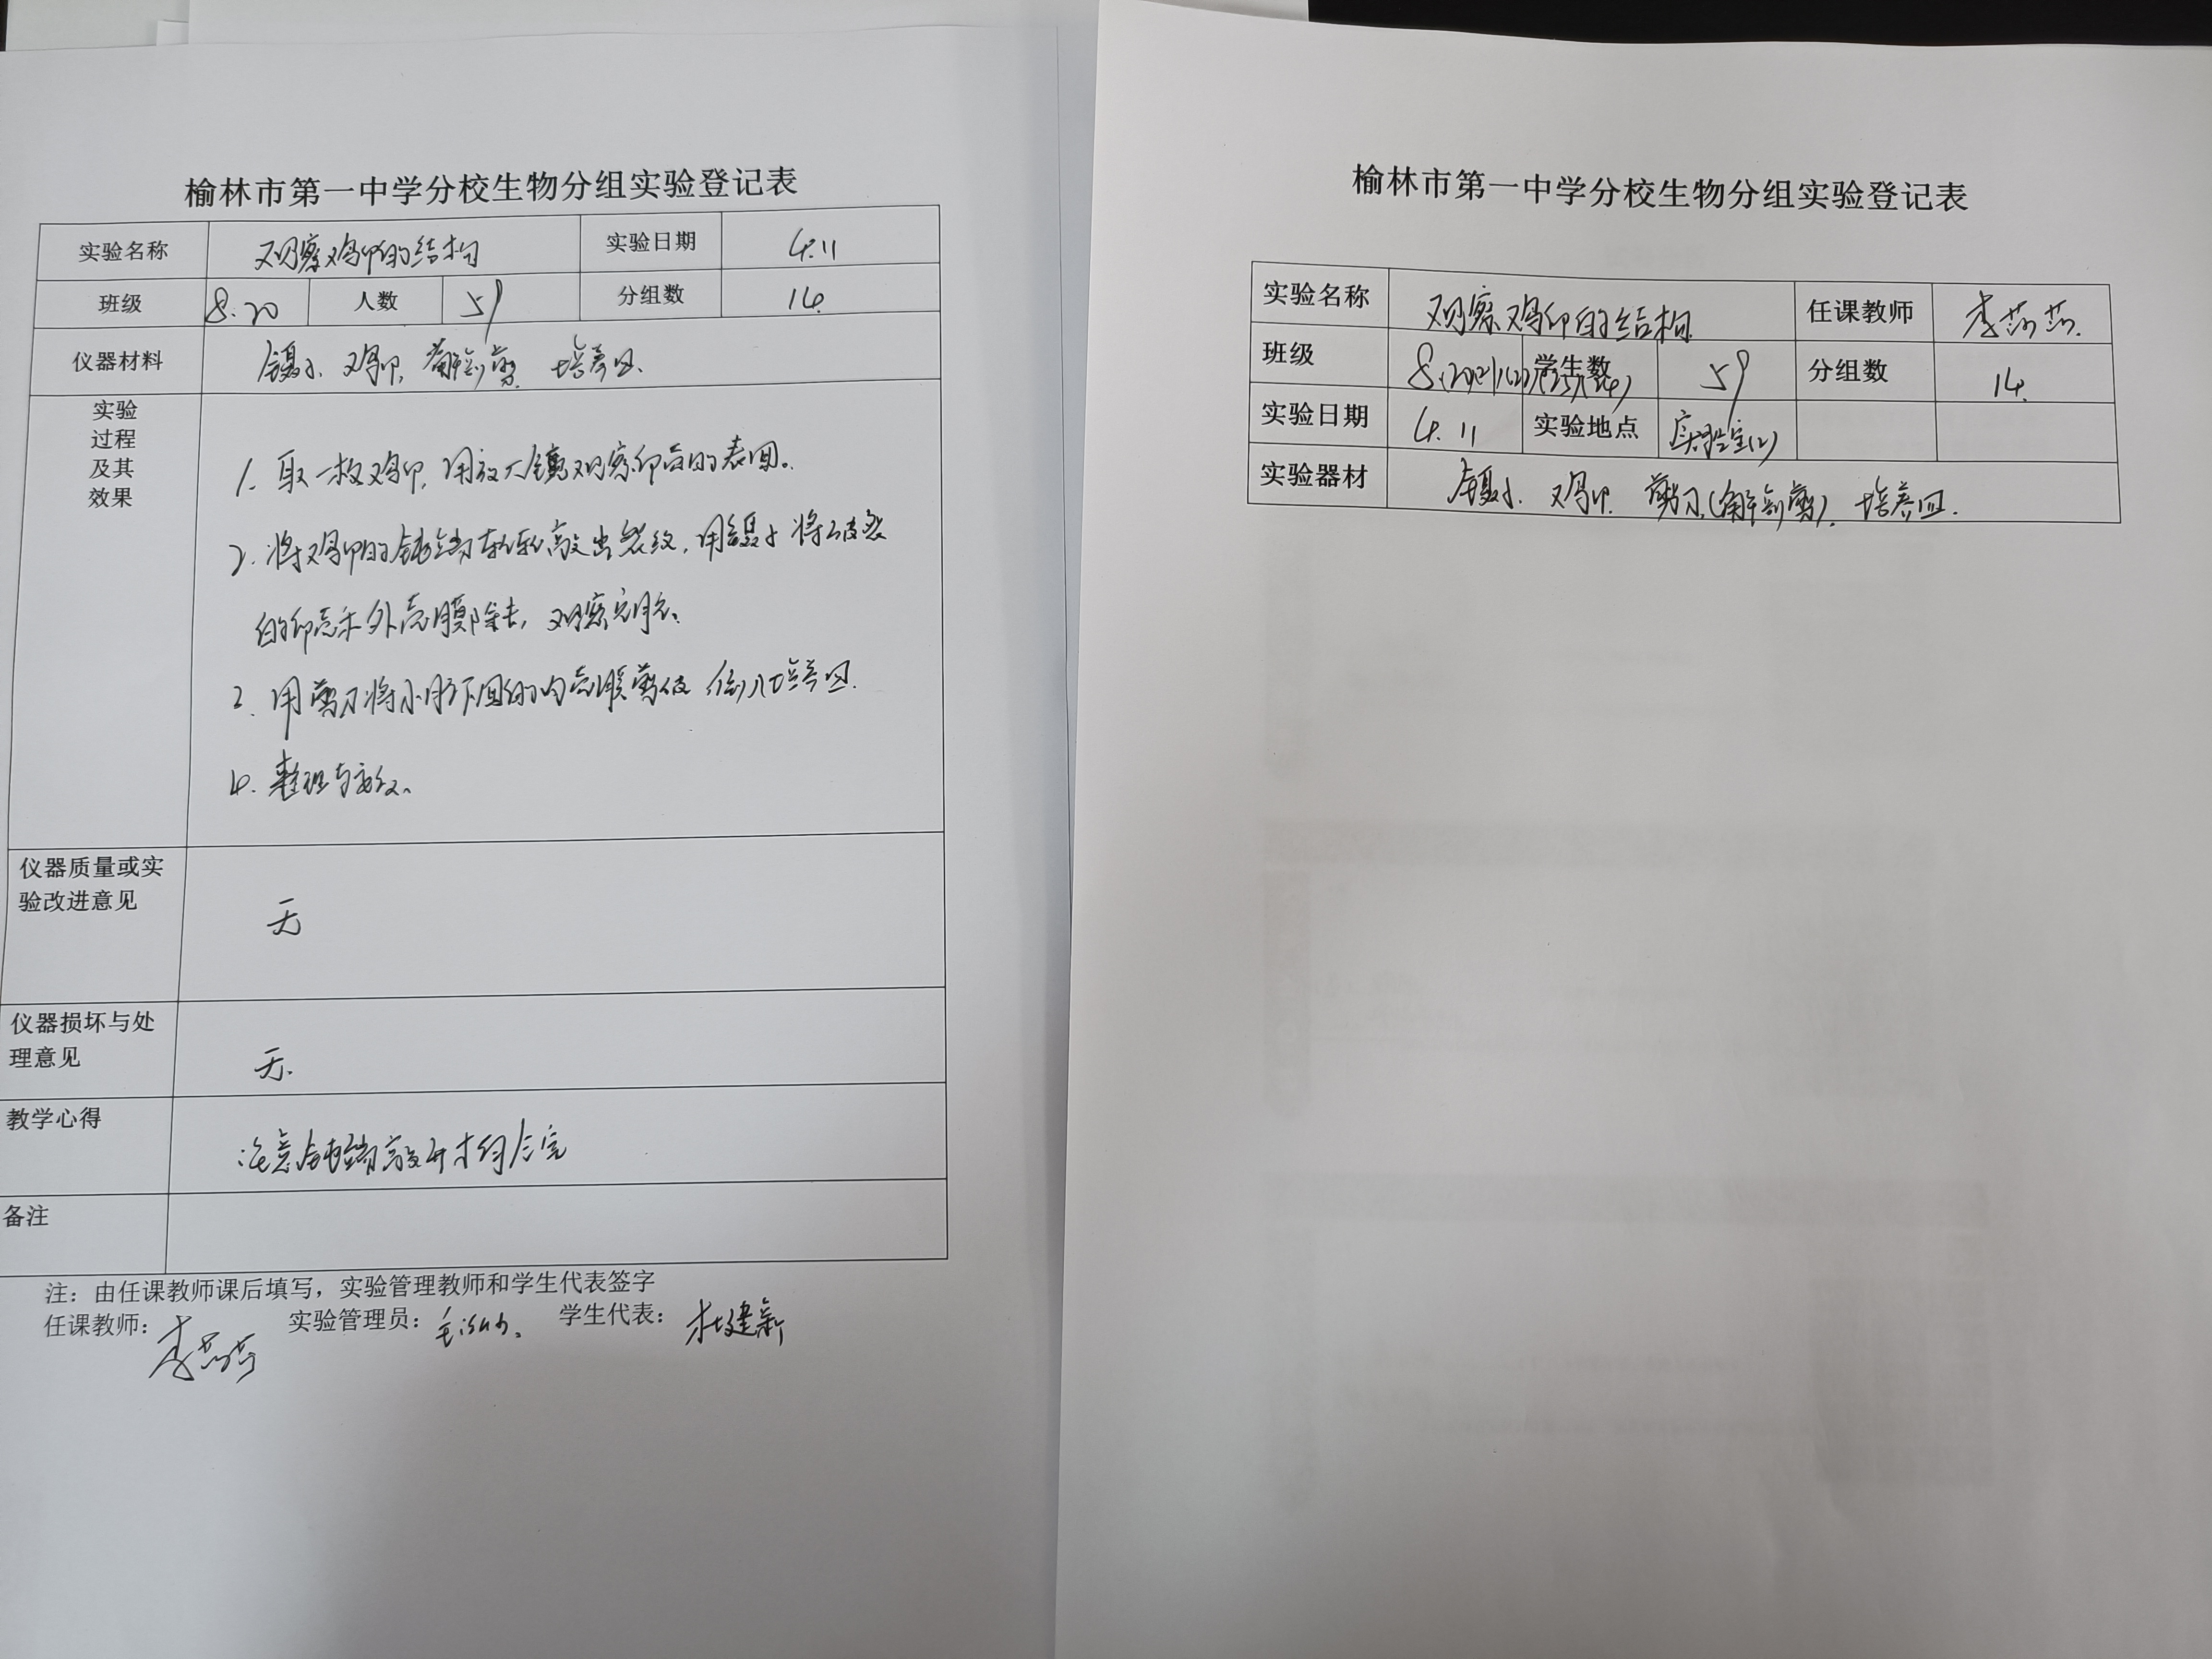 榆林市第一中学分校生物分组实验登记表
实验名称 观察鸡卵的结构 实验日期 4.11
班级 8.20 人数 59 分组数 14
仪器材料 镊子 鸡卵 解剖剪 培养皿
实验过程及其效果
1. 取一枚鸡卵,用放大镜观察卵壳的表面。
2. 将鸡卵的钝端轻轻敲出裂纹,用镊子将破裂
的卵壳和外壳膜除去,观察气室。
3. 用剪刀将小 下面的内壳膜剪破 倒入培养皿.
4. 整理
仪器质量或实
验改进意见
无
仪器损坏与处
理意见
无.
教学心得
注意钝端敲开 气室
备注
注:由任课教师课后填写,实验管理教师和学生代表签字
任课教师: 李莎莎 实验管理员: 学生代表: 杜建新
榆林市第一中学分校生物分组实验登记表
实验名称 观察鸡卵的结构 任课教师 李莎莎.
班级 学生数 59 分组数 14.
实验日期 4.11 实验地点 实验室(2)
实验器材 镊子. 鸡卵. 剪刀(解剖剪). 培养皿.